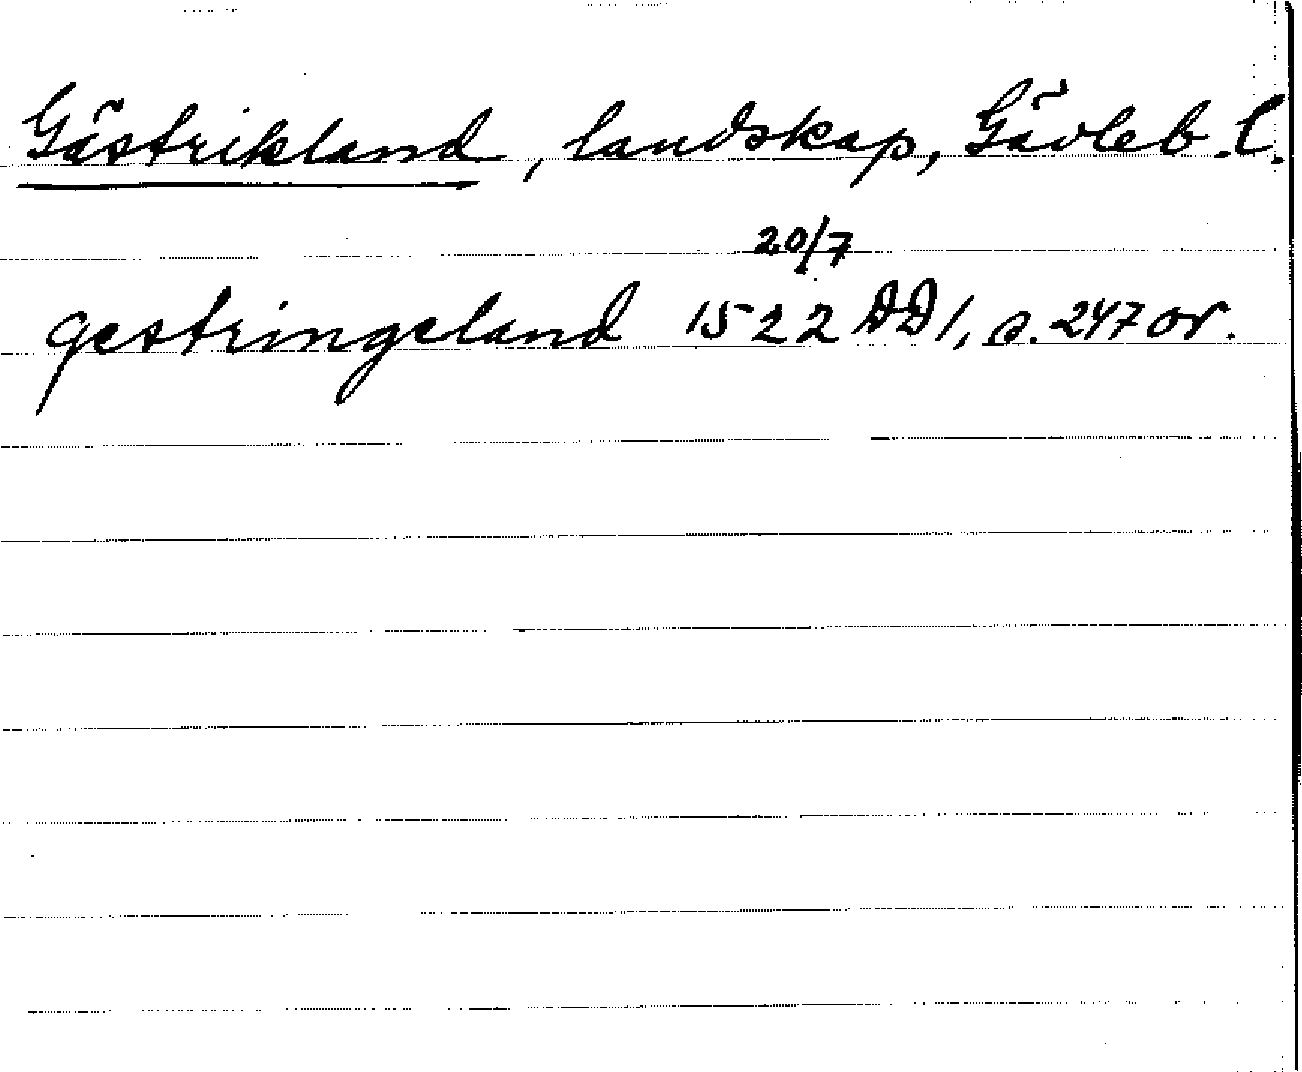 Gästrikland, landskap, Gävleb. l.
20/7
gestringeland 1522 DD 1, s. 247 or.